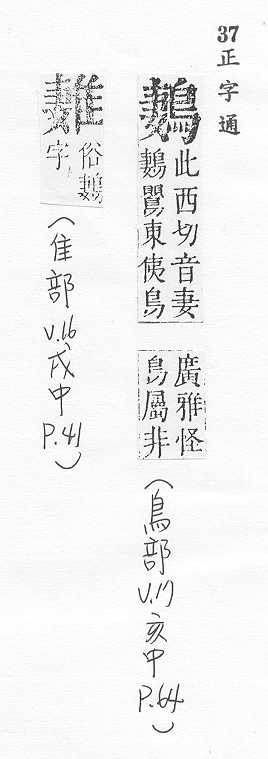 37 正字通
鶈
此西切音妻
鶈東鳥
廣雅怪
鳥屬非
(鳥部 V.17 亥中 P.64)
俗鶈
字
(隹部 V.16 戌中 P.41)